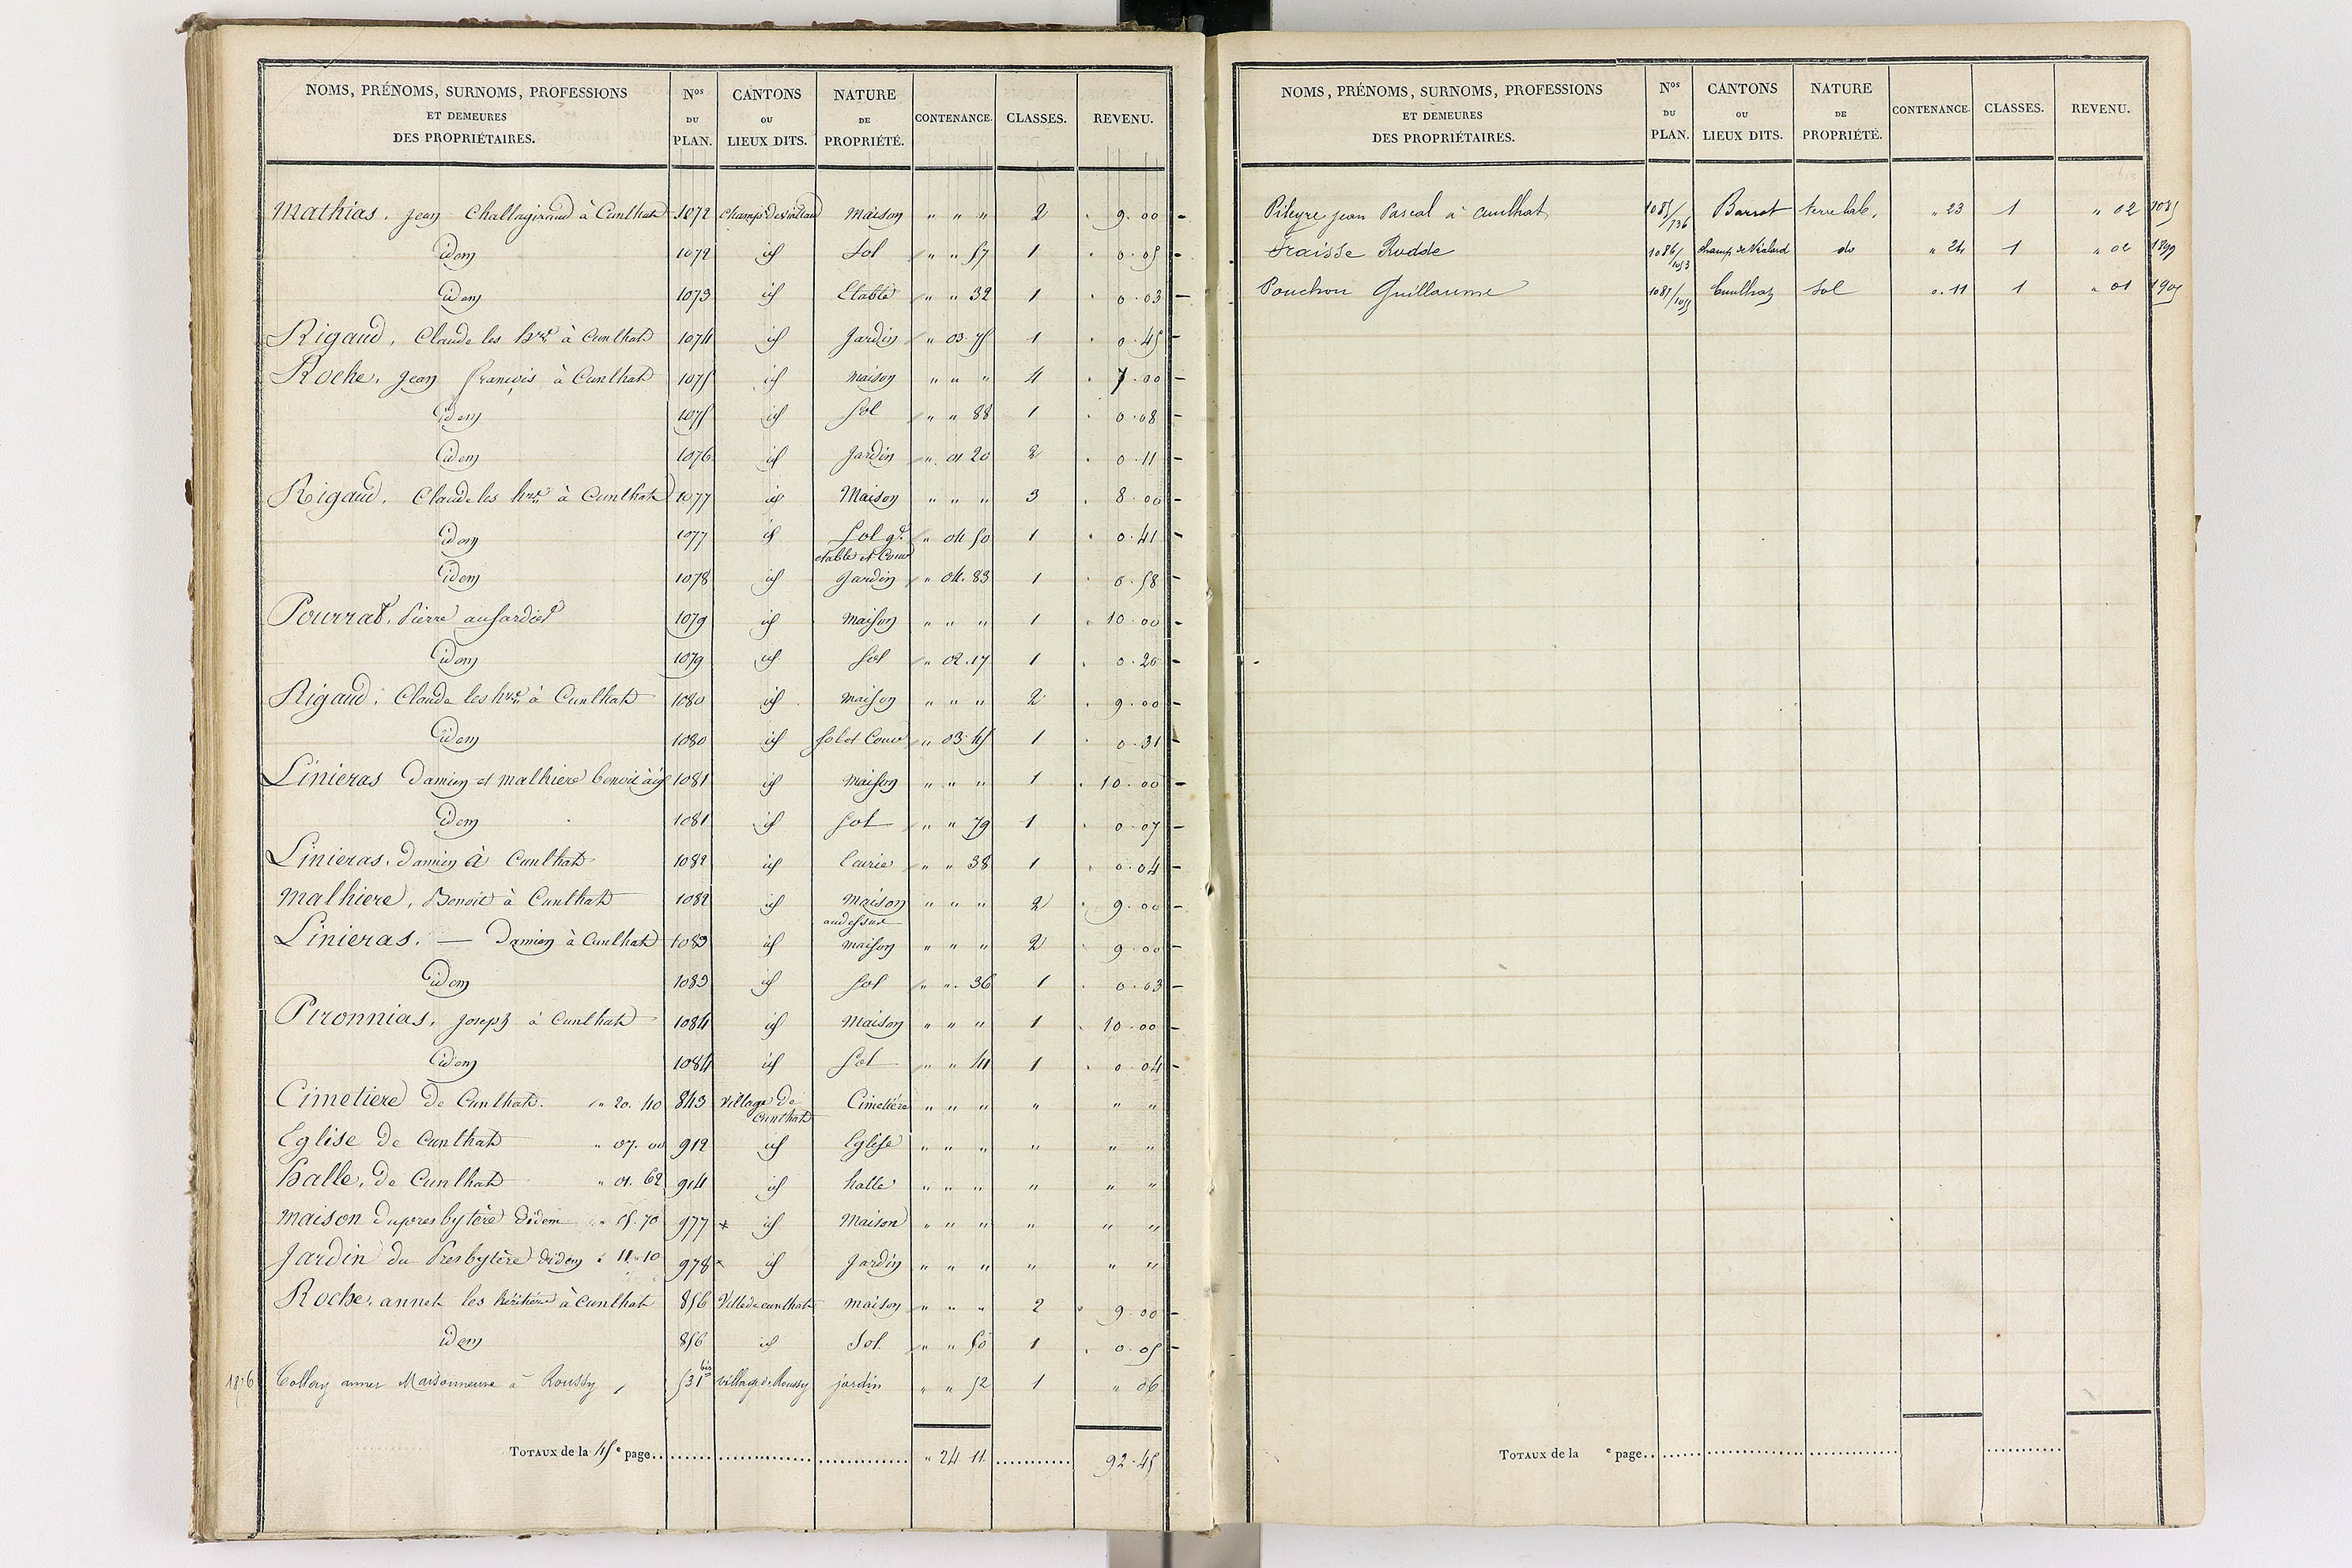 NOMS, PRÉNOMS, SURNOMS, PROFESSIONS ET DEMEURES DES PROPRIÉTAIRES. Nos DU PLAN. CANTONS OU LIEUX DITS. NATURE DE PROPRIÉTÉ. CONTENANCE. CLASSES. REVENU.
Mathias. jean Challagiraud à Cunlhat 1072 Maison " " " 2 9.00
idem 1072 id Sol " " 57 1 0.05
idem 1073 id Etable " " 32 1 0.03
Rigaud, Claude les hers à Cunlhat 1074 id Jardin " 03.75 1 0.45
Roche. jean françois à Cunlhat 1075 id maison " " " 4 7.00
idem 1075 id Sol " " 88 1 0.08
idem 1076 id Jardin " 01 20 2 0.11
Rigaud. Claude les hers à Cunlhat 1077 id Maison " " " 3 8.00
idem 1077 id Sol gd " 04 50 1 0.41
etable et Cour
idem 1078 id Jardin " 04.83 1 0.58
Pourrat, Pierre 1079 id maison " " " 1 10.00
idem 1079 id Sol " 02.17 1 0.20
Rigaud. Claude les hers à Cunlhat 1080 id maison " " " 2 9.00
idem 1080 id Sol et Cour " 03.45 1 0.31
Linieras Damien et malhiere benoit 1081 id maison " " " 1 10.00
idem 1081 id Sol " " 79 1 0.07
Linieras. Damien à Cunlhat 1082 id Ecurie " " 38 1 0.04
malhiere, Benoit à Cunlhat 1082 id Maison " " " 2 9.00
au dessus
Linieras. — Damien à Cunlhat 1083 id maison " " " 2 9.00
idem 1083 id Sol " " 36 1 0.03
Pironnias, joseph à Cunlhat 1084 id Maison " " " 1 10.00
idem 1084 id Sol " " 41 1 0.04
Cimetiere de Cunlhat. " 20.40 843 Village de Cunlhat Cimetière " " " " " "
Eglise de Cunlhat " 07.00 912 id Eglise " " " " " "
Halle, de Cunlhat " 01.62 914 id halle " " " " " "
maison du presbytère didem " 05.70 977 x id Maison " " " " " "
Jardin du Presbytère didem " 11.10 978 x id Jardin " " " " " "
Roche, annet les héritiers à Cunlhat 856 Ville de cunlhat maison " " " 2 9.00
idem 856 id Sol. " " 50 1 0.05
Maisonneuve à Roussy 531 bis village de Roussy jardin " " 52 1 " 06
TOTAUX de la 45e page " 24 11 92.45
NOMS, PRÉNOMS, SURNOMS, PROFESSIONS ET DEMEURES DES PROPRIÉTAIRES. Nos DU PLAN. CANTONS OU LIEUX DITS. NATURE DE PROPRIÉTÉ. CONTENANCE. CLASSES. REVENU.
Pileyre jean Pascal à cunlhat 1085/736 Barrot " 23 1 " 02
Fraisse Rodde 1086/1053 champ de Vialard do " 24 1 " 02 1899
Pouchon Guillaume Cunlhat Sol " 11 1 " 01
TOTAUX de la e page